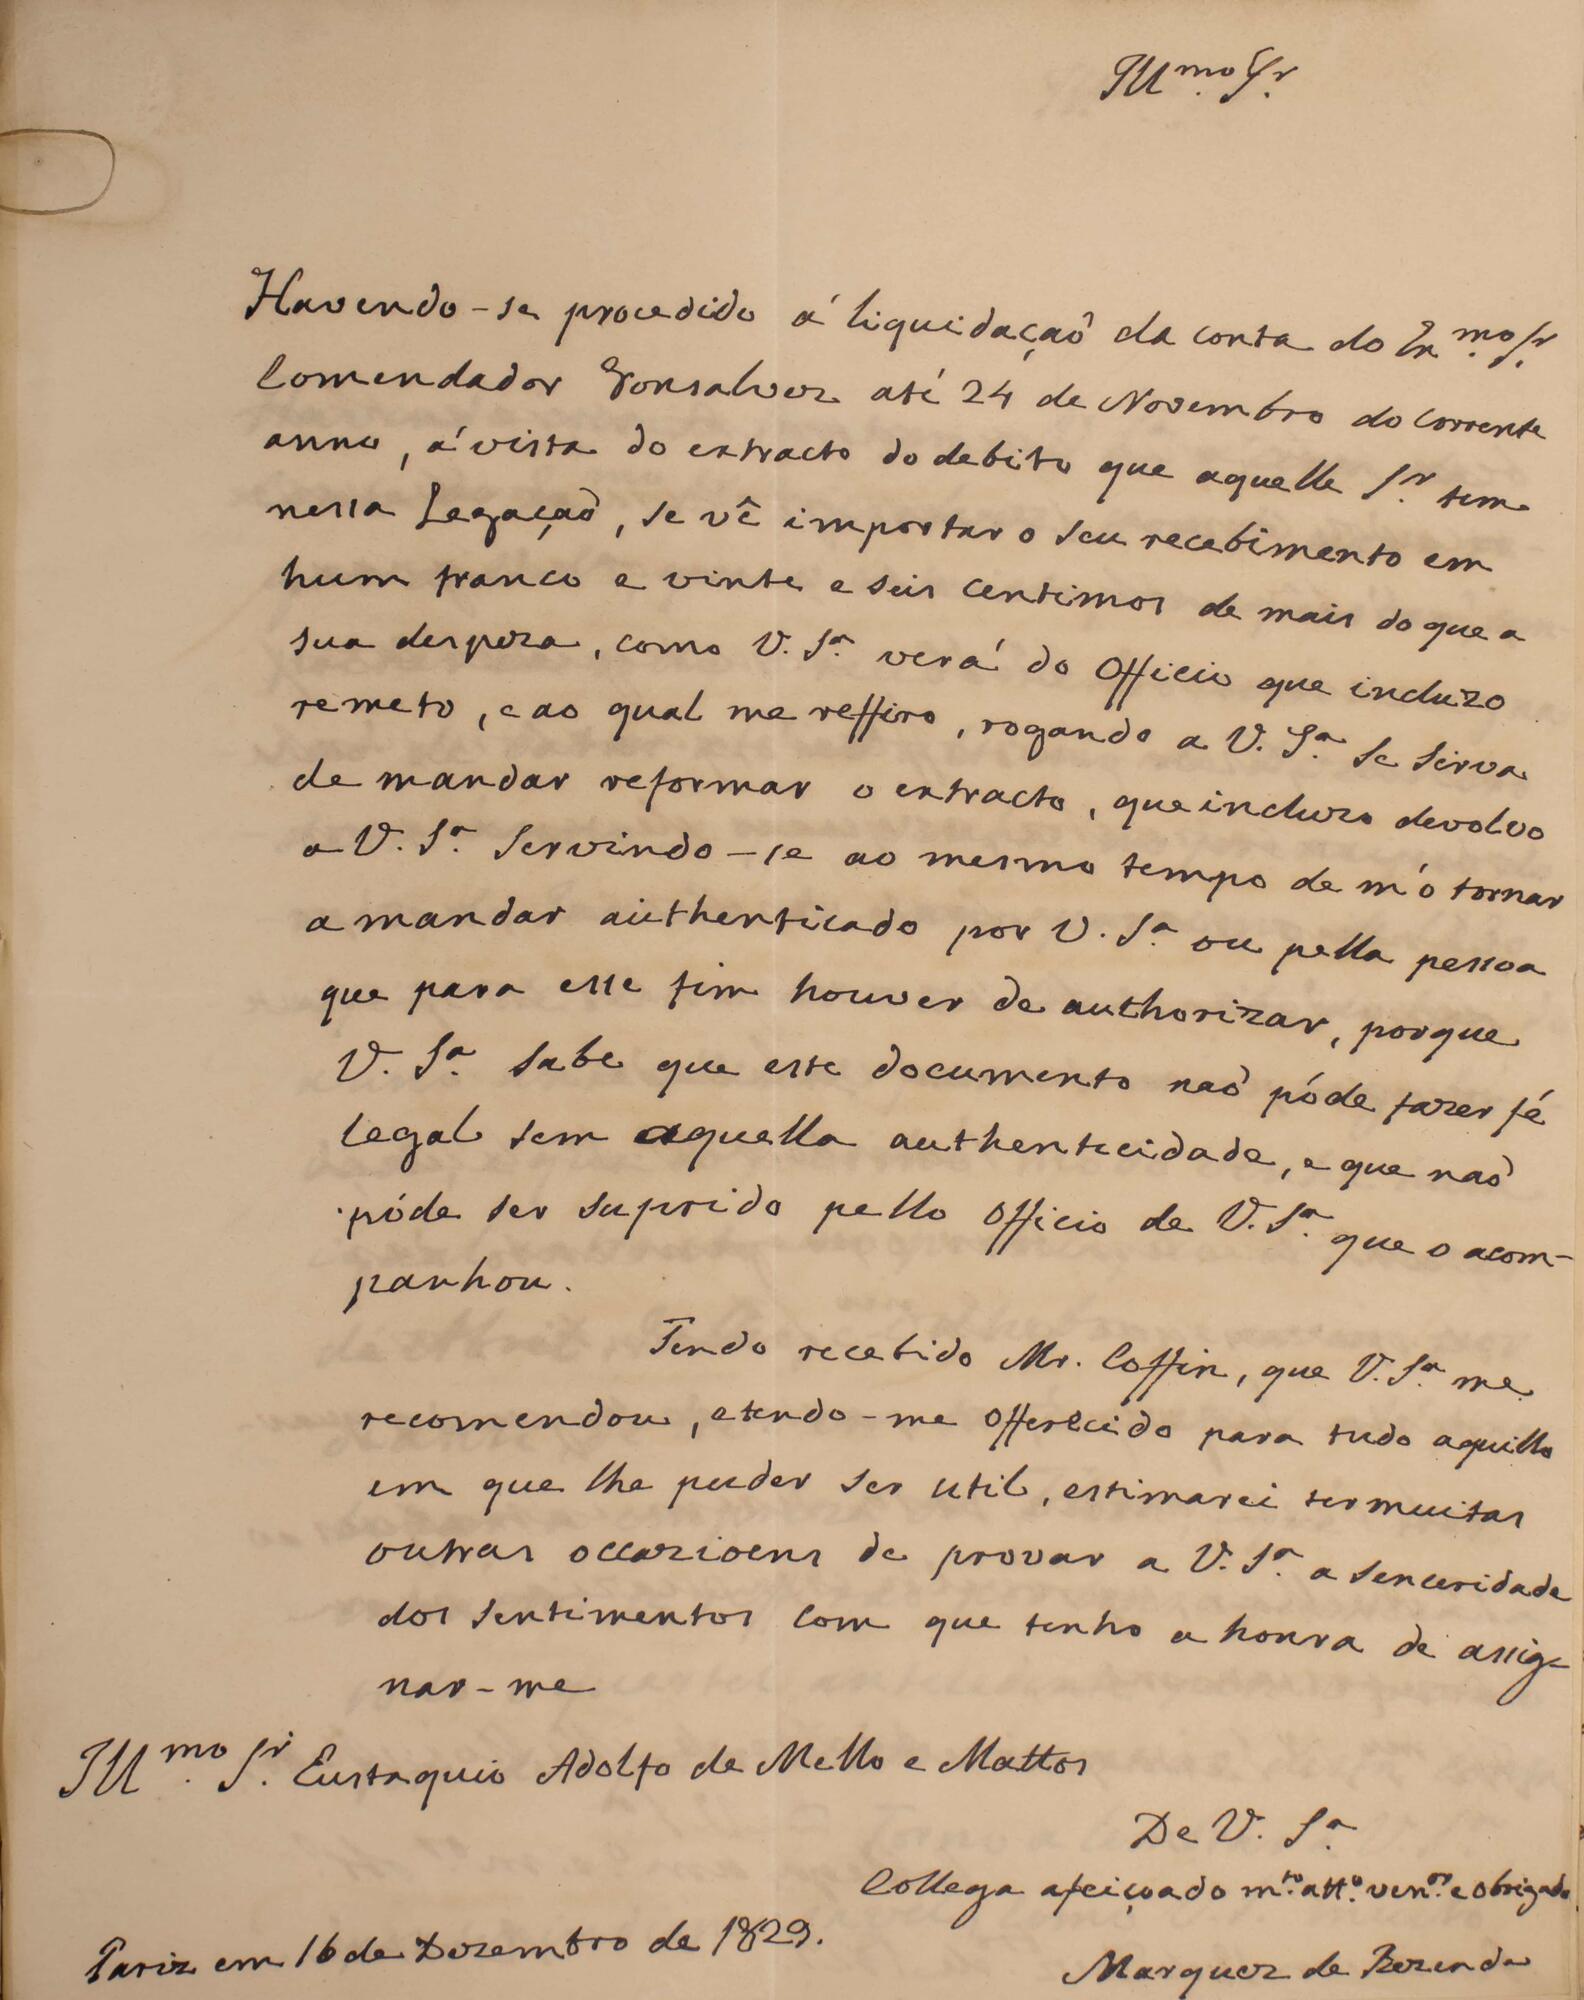 Ill.mo Sr.
Havendo-se procedido á liquidaçaõ da conta do Ex.mo Sr.
Comendador Gonsalvez até 24 de Novembro do corrente
anno, á vista do extracto do debito que aquelle Sr. tem
nessa Legaçaõ, se vê importar o seu recebimento em
hum franco e vinte e seis centimos de mais do que a
sua despeza, como V. Sa. verá do Officio que incluzo
remeto, e ao qual me reffiro, rogando a V. Sa. se sirva
de mandar reformar o extracto, que incluzo devolvo
a V. Sa. servindo-se ao mesmo tempo de m'o tornar
a mandar authenticado por V. Sa. ou pella pessoa
que para esse fim houver de authorizar, porque
V. Sa. sabe que este documento naõ póde fazer fé
legal sem aquella authenticidade, e que naõ
póde ser suprido pello Officio de V. Sa. que o acom-
panhou.
Tendo recebido Mr. Coffin, que V. Sa. me
recomendou, e tendo-me offerecido para tudo aquillo
em que lhe puder ser util, estimarei ter muitas
outras occazioens de provar a V. Sa. a senceridade
dos sentimentos com que tenho a honra de assig-
nar-me
Ill.mo Sr. Eustaquio Adolfo de Mello e Mattos
De V. Sa.
Collega afeiçoado m.to att.o ven.or e obrigado
Pariz em 16 de Dezembro de 1829.
Marquez de Rezende